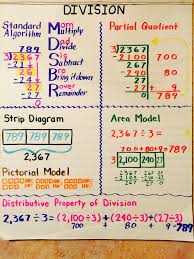 DIVISION
Standard Algorithm
Mom Multiply
Dad Divide
Sis Subtract
Bro Bring it down
Rover Remainder
789
3 2367
-21
26
-24
27
-27
0
Partial Quotient
3 2,367
-2,100 700
267
-240 80
27
-27 9
0 789
Strip Diagram
789 789 789
2,367
Pictorial Model
Area Model
2,367 ÷ 3 =
700 + 80 + 9 = 789
3 2,100 240 27
Distributive Property of Division
2,367 ÷ 3 = (2,100 ÷ 3) + (240 ÷ 3) + (27 ÷ 3)
700 + 80 + 9 = 789